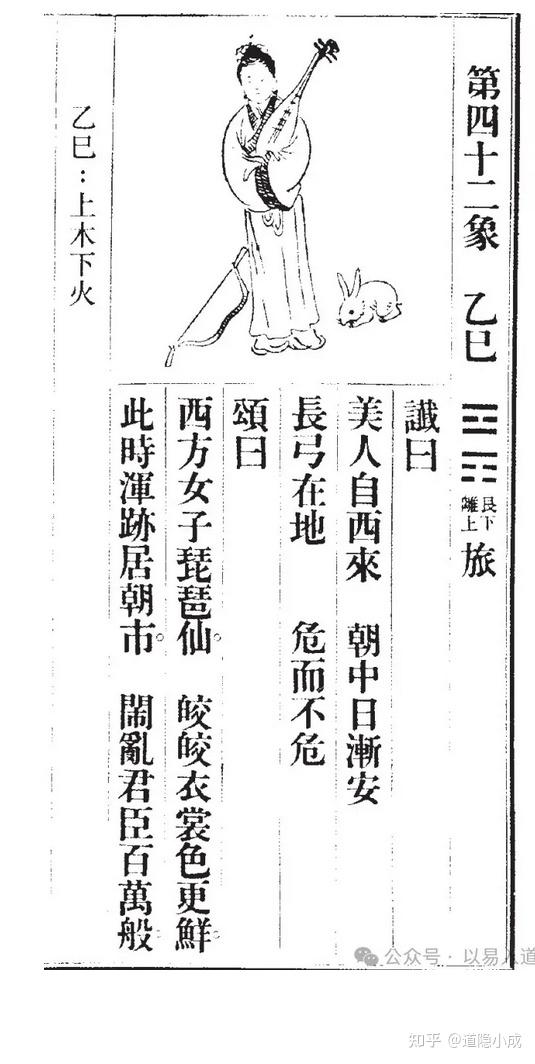 第四十二象 乙巳 艮下離上 旅
讖曰
美人自西來 朝中日漸安
長弓在地 危而不危
頌曰
西方女子琵琶仙。 皎皎衣裳色更鮮。
此時渾跡居朝市。 鬧亂君臣百萬般
乙巳：上木下火
公众号·以易入道
知乎 @道隐小成